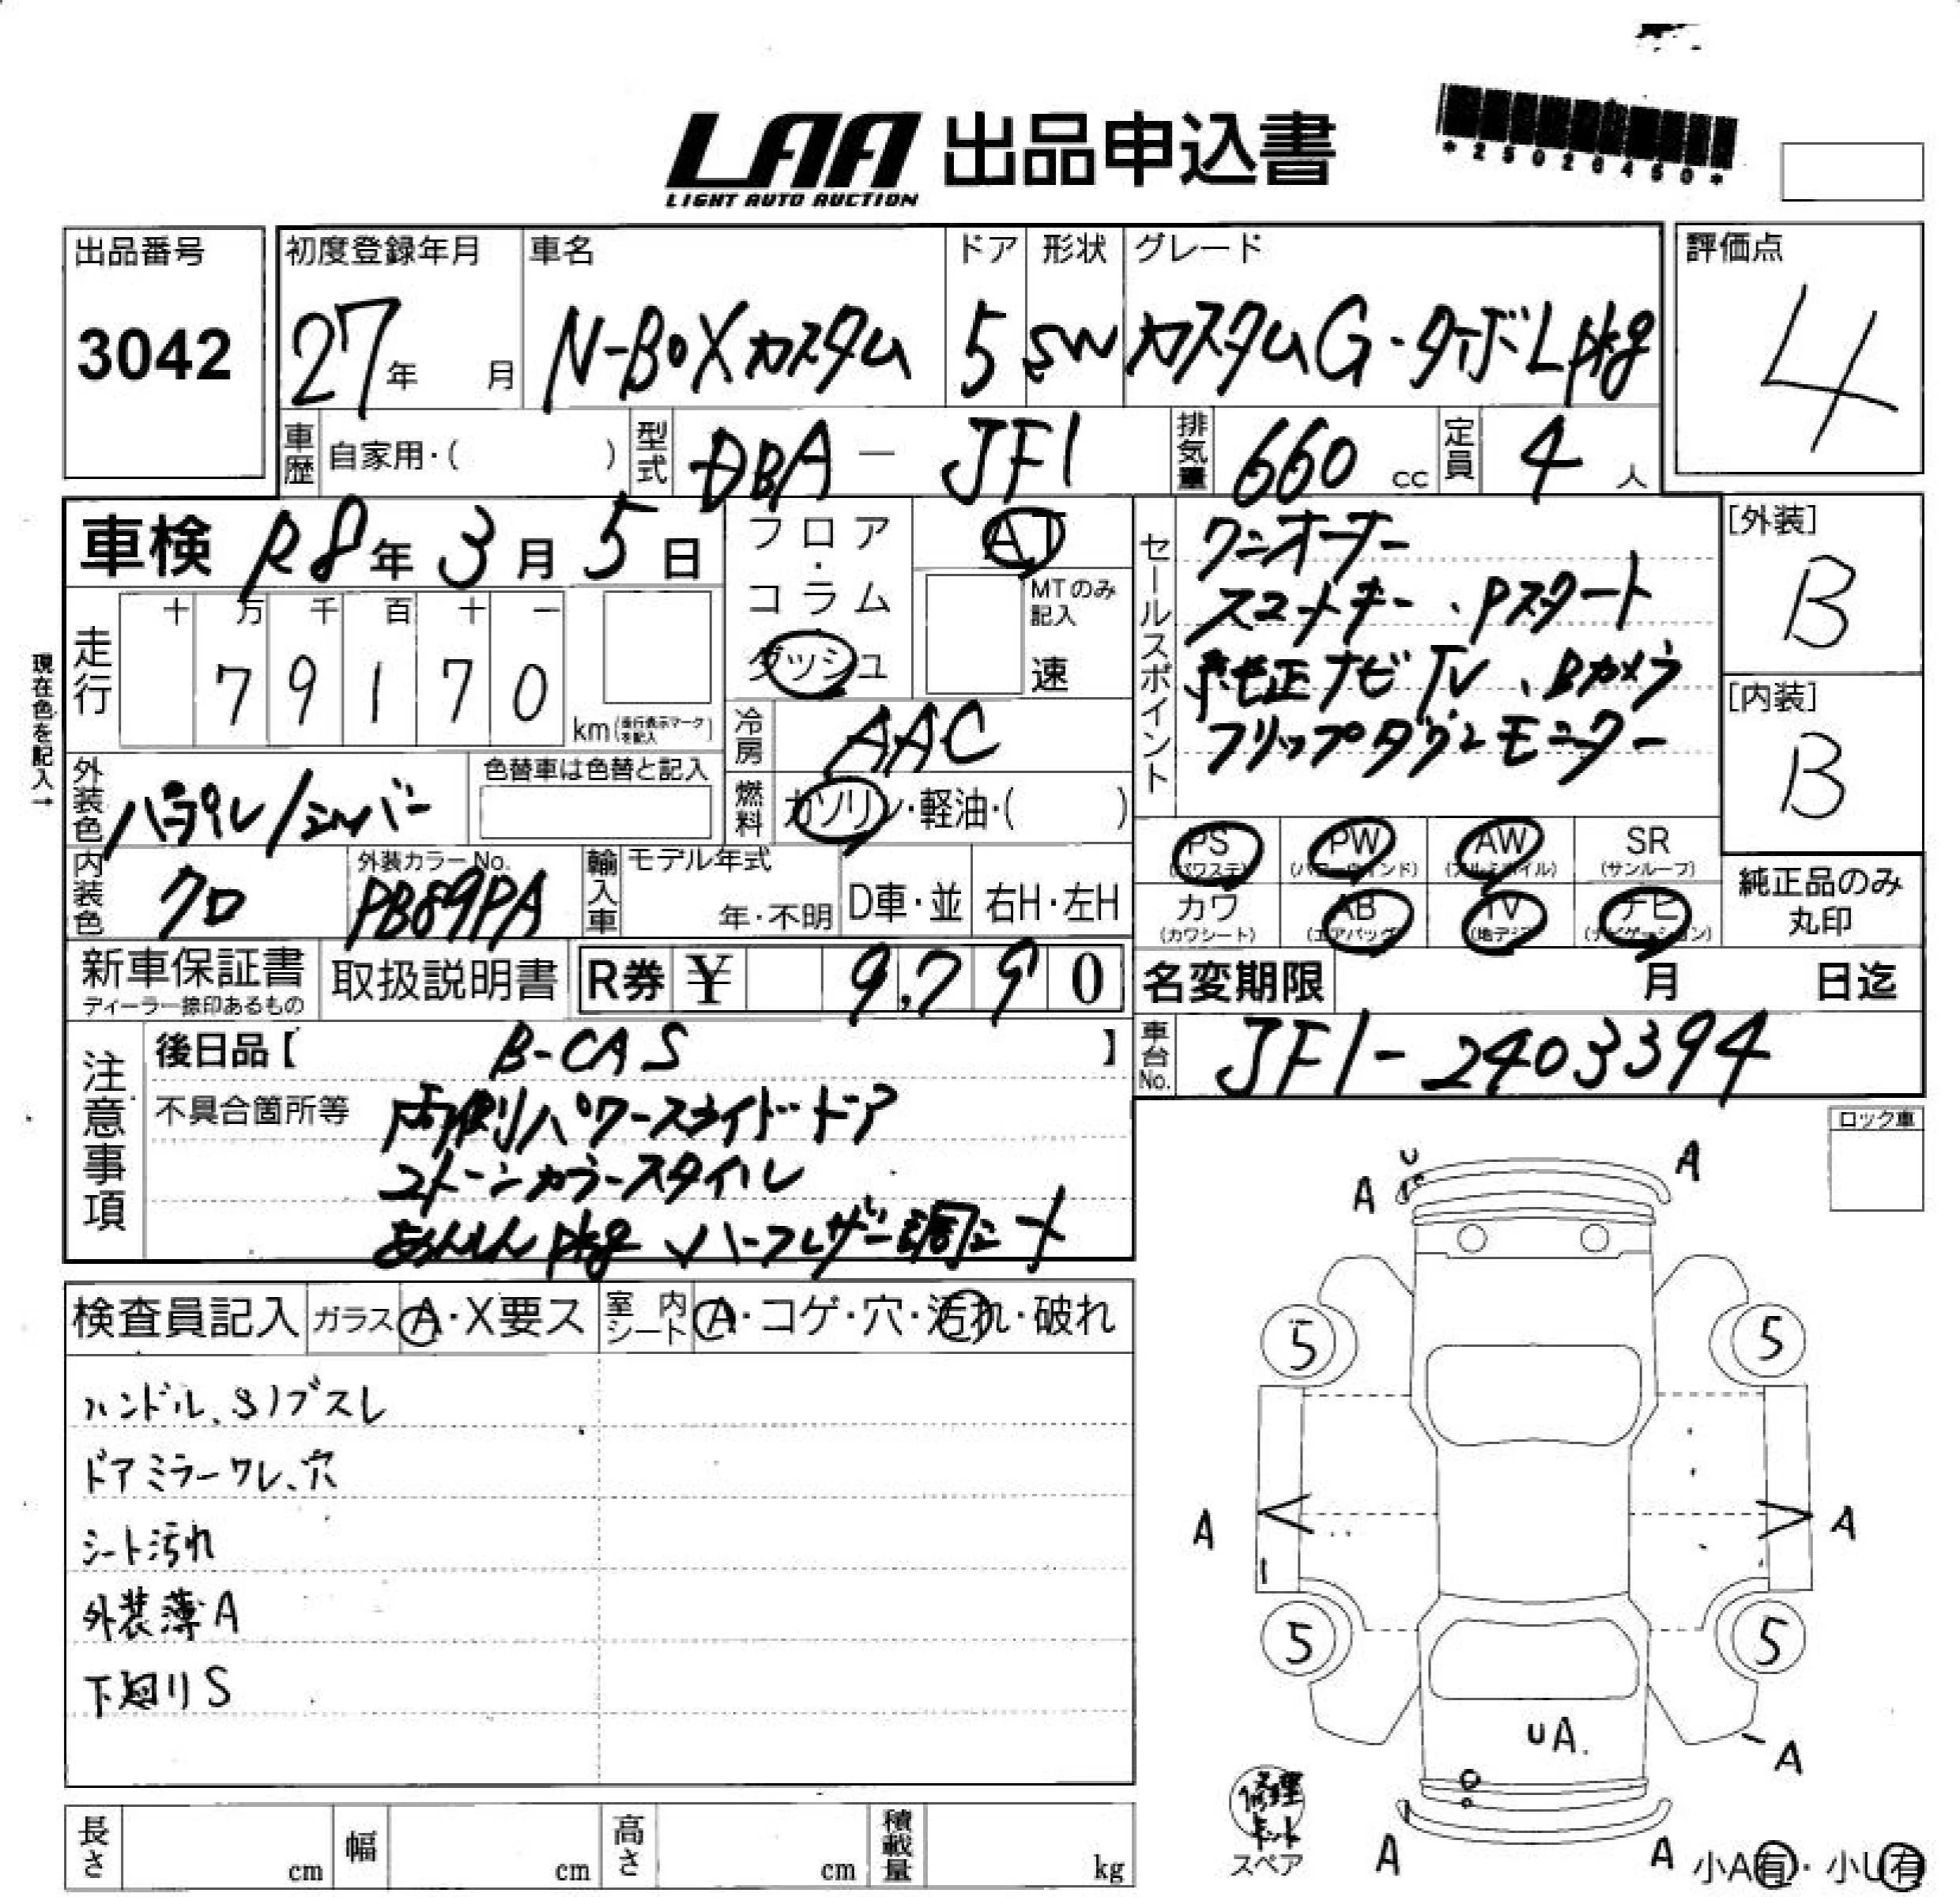 LAA 出品申込書
LIGHT AUTO AUCTION
*25020450*
出品番号
3042
初度登録年月
27年 月
車名
N-BOXカスタム
ドア
5
形状
SW
グレード
カスタムG・ターボLpkg
評価点
4
車歴 自家用・( )
型式 DBA - JF1
排気量 660 cc
定員 4 人
車検 R8年3月5日
フロア・コラム・ダッシュ
AT
MTのみ記入
速
セールスポイント
ワンオーナー
スマートキー、Pスタート
純正ナビTV、Bカメラ
フリップダウンモニター
[外装]
B
[内装]
B
現在色を記入→
走行
十 万 千 百 十 一
7 9 1 7 0
km (走行表示マークを記入)
冷房 AAC
外装色 パープル/シルバー
色替車は色替と記入
燃料 ガソリン・軽油・( )
内装色 クロ
外装カラーNo.
PB89PA
輸入車 モデル年式
年・不明
D車・並 右H・左H
PS (パワステ)
PW (パワーウインド)
AW (アルミホイル)
SR (サンルーフ)
カワ (カワシート)
AB (エアバッグ)
TV (地デジ)
ナビ (ナビゲーション)
純正品のみ丸印
新車保証書
ディーラー捺印あるもの
取扱説明書
R券 ¥ 9,790
名変期限 月 日迄
注意事項
後日品【 B-CAS 】
不具合箇所等 両側パワースライドドア
2トーンカラースタイル
あんしんpkg、ハーフレザー調シート
車台No. JF1-2403394
ロック車
検査員記入
ガラス A・X要ス
室内シート A・コゲ・穴・汚れ・破れ
ハンドル、Sノブスレ
ドアミラーワレ、穴
シート汚れ
外装薄A
下廻りS
U
A
A
5
5
A
A
5
5
UA.
A
修理キット
スペア
A
A
小A有・小U有
長さ cm
幅 cm
高さ cm
積載量 kg